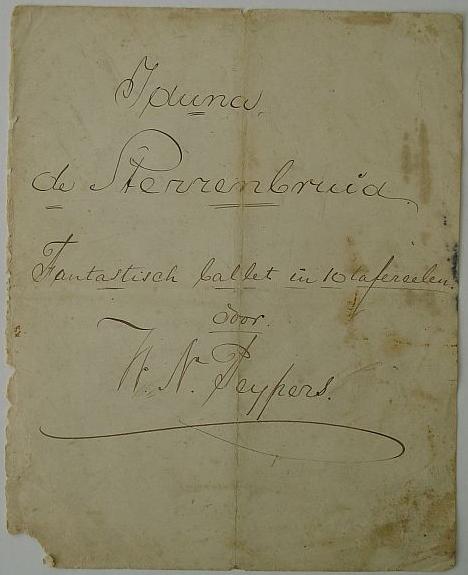 Iduna.
de Sterrenbruid
Fantastisch ballet in 10 tafereelen.
door.
W. N. Peypers.